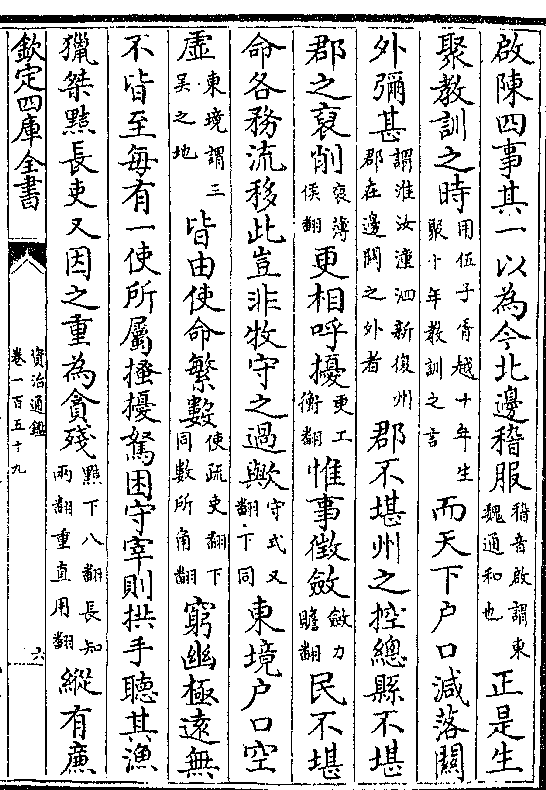 啟陳四事其一以為今北邊稽服稽音啟謂東魏通和也正是生
聚教訓之時用伍子胥越十年生聚十年教訓之言而天下户口減落關
外彌甚謂淮汝潼泗新復州郡在邊關之外者郡不堪州之控總縣不堪
郡之裒削裒薄侯翻更相呼擾更工衡翻惟事徵斂斂力贍翻民不堪
命各務流移此豈非牧守之過歟守式又翻下同東境户口空
虛東境謂三吴之地皆由使命繁數使疏吏翻下同數所角翻窮幽極遠無
不皆至每有一使所屬搔擾駑困守宰則拱手聽其漁
獵桀黠長吏又因之重為貪殘黠下八翻長知兩翻重直用翻縱有廉
欽定四庫全書
資治通鑑
卷一百五十九
六